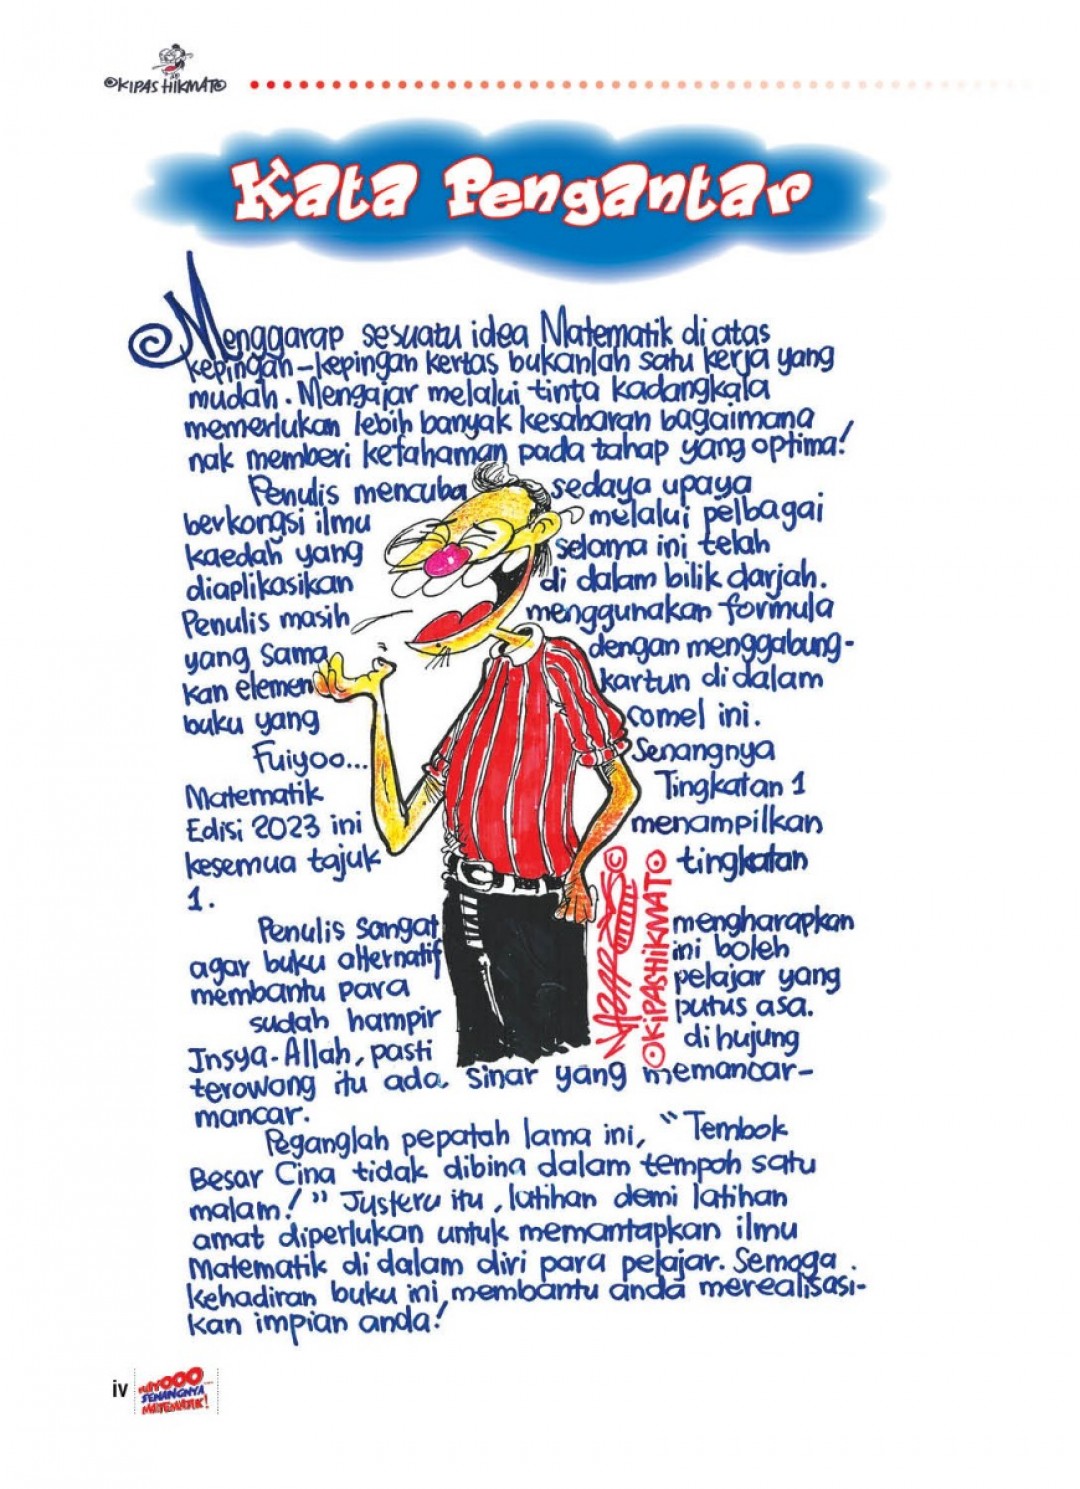 ©KIPASHIKMATO
Kata Pengantar
Menggarap sesuatu idea Matematik di atas
kepingan-kepingan kertas bukanlah satu kerja yang
mudah. Mengajar melalui tinta kadangkala
memerlukan lebih banyak kesabaran bagaimana
nak memberi kefahaman pada tahap yang optima!
Penulis mencuba sedaya upaya
berkongsi ilmu melalui pelbagai
kaedah yang selama ini telah
diaplikasikan di dalam bilik darjah.
Penulis masih menggunakan formula
yang sama dengan menggabung-
kan elemen kartun di dalam
buku yang comel ini.
Fuiyoo... Senangnya
Matematik Tingkatan 1
Edisi 2023 ini menampilkan
kesemua tajuk tingkatan
1.
Penulis sangat mengharapkan
agar buku alternatif ini boleh
membantu para pelajar yang
sudah hampir putus asa.
Insya-Allah, pasti di hujung
terowong itu ada sinar yang memancar-
mancar.
Peganglah pepatah lama ini, "Tembok
Besar Cina tidak dibina dalam tempoh satu
malam!" Justeru itu, latihan demi latihan
amat diperlukan untuk memantapkan ilmu
Matematik di dalam diri para pelajar. Semoga
kehadiran buku ini membantu anda merealisasi-
kan impian anda!
©KIPASHIKMATO
iv
FUIYOOO
SENANGNYA
MATEMATIK!